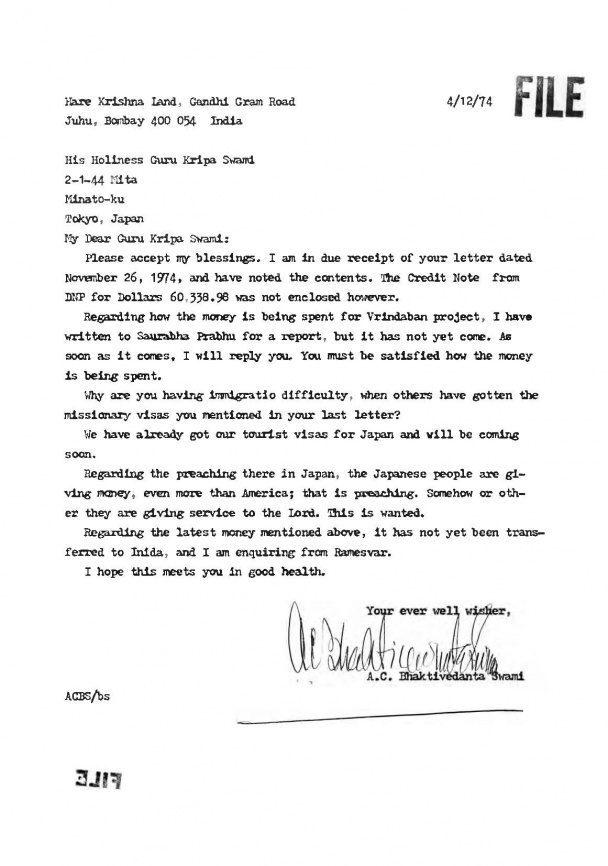 FILE
Hare Krishna Land, Gandhi Gram Road 4/12/74
Juhu, Bombay 400 054 India
His Holiness Guru Kripa Swami
2-1-44 Mita
Minato-ku
Tokyo, Japan
My Dear Guru Kripa Swami:
Please accept my blessings. I am in due receipt of your letter dated
November 26, 1974, and have noted the contents. The Credit Note from
DNP for Dollars 60,338.98 was not enclosed however.
Regarding how the money is being spent for Vrindaban project, I have
written to Saurabha Prabhu for a report, but it has not yet come. As
soon as it comes, I will reply you. You must be satisfied how the money
is being spent.
Why are you having immigratio difficulty, when others have gotten the
missionary visas you mentioned in your last letter?
We have already got our tourist visas for Japan and will be coming
soon.
Regarding the preaching there in Japan, the Japanese people are gi-
ving money, even more than America; that is preaching. Somehow or oth-
er they are giving service to the Lord. This is wanted.
Regarding the latest money mentioned above, it has not yet been trans-
ferred to Inida, and I am enquiring from Ramesvar.
I hope this meets you in good health.
Your ever well wisher,
A.C. Bhaktivedanta Swami
ACBS/bs
FILE